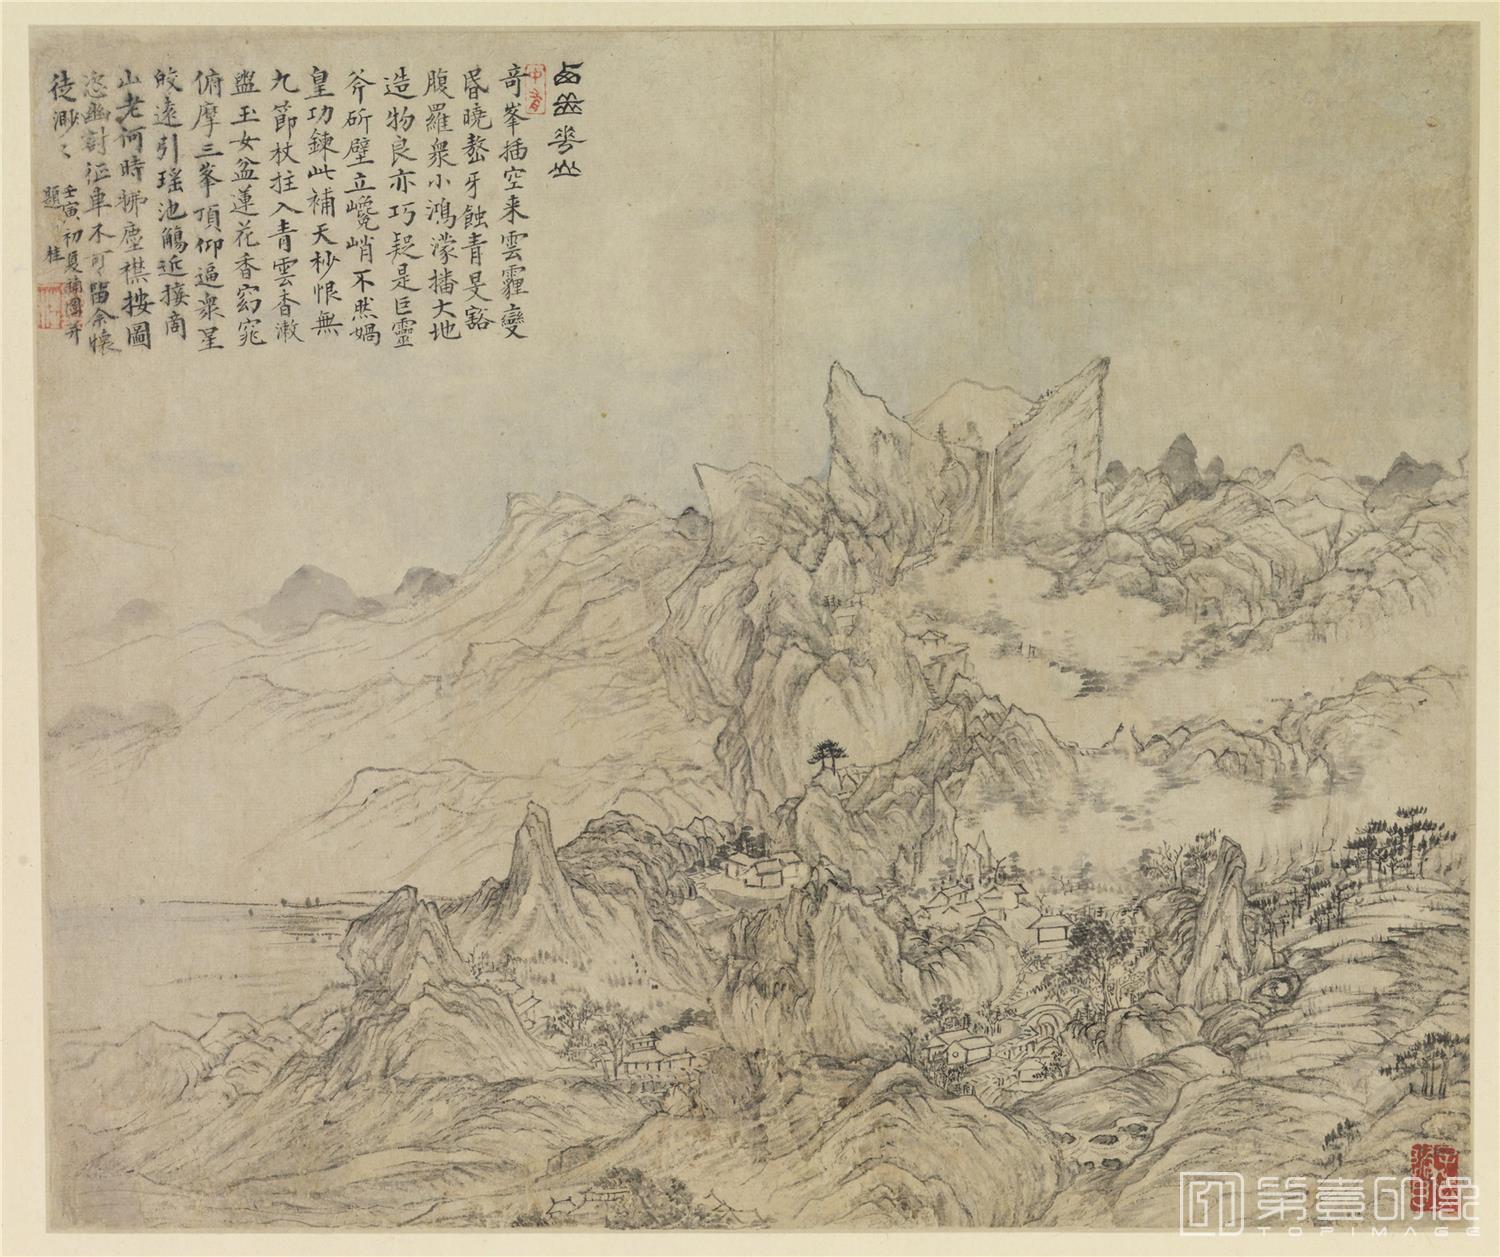 西嶽華山
奇峯插空来雲霾變
昏曉嶅牙蝕青旻谽
腹羅衆小鴻濛播大地
造物良亦巧疑是巨靈
斧斫壁立巉峭不然媧
皇功鍊此補天杪恨無
九節杖拄入青雲杳漱
盥玉女盆蓮花香窈窕
俯摩三峯頂仰逼衆星
皎遠引瑶池觴近接商
山老何時拂塵襟按圖
恣幽討征車不可留余懷
徒渺〻
壬寅初夏補圖并
題 桂
第壹印像
TOPIMAGE